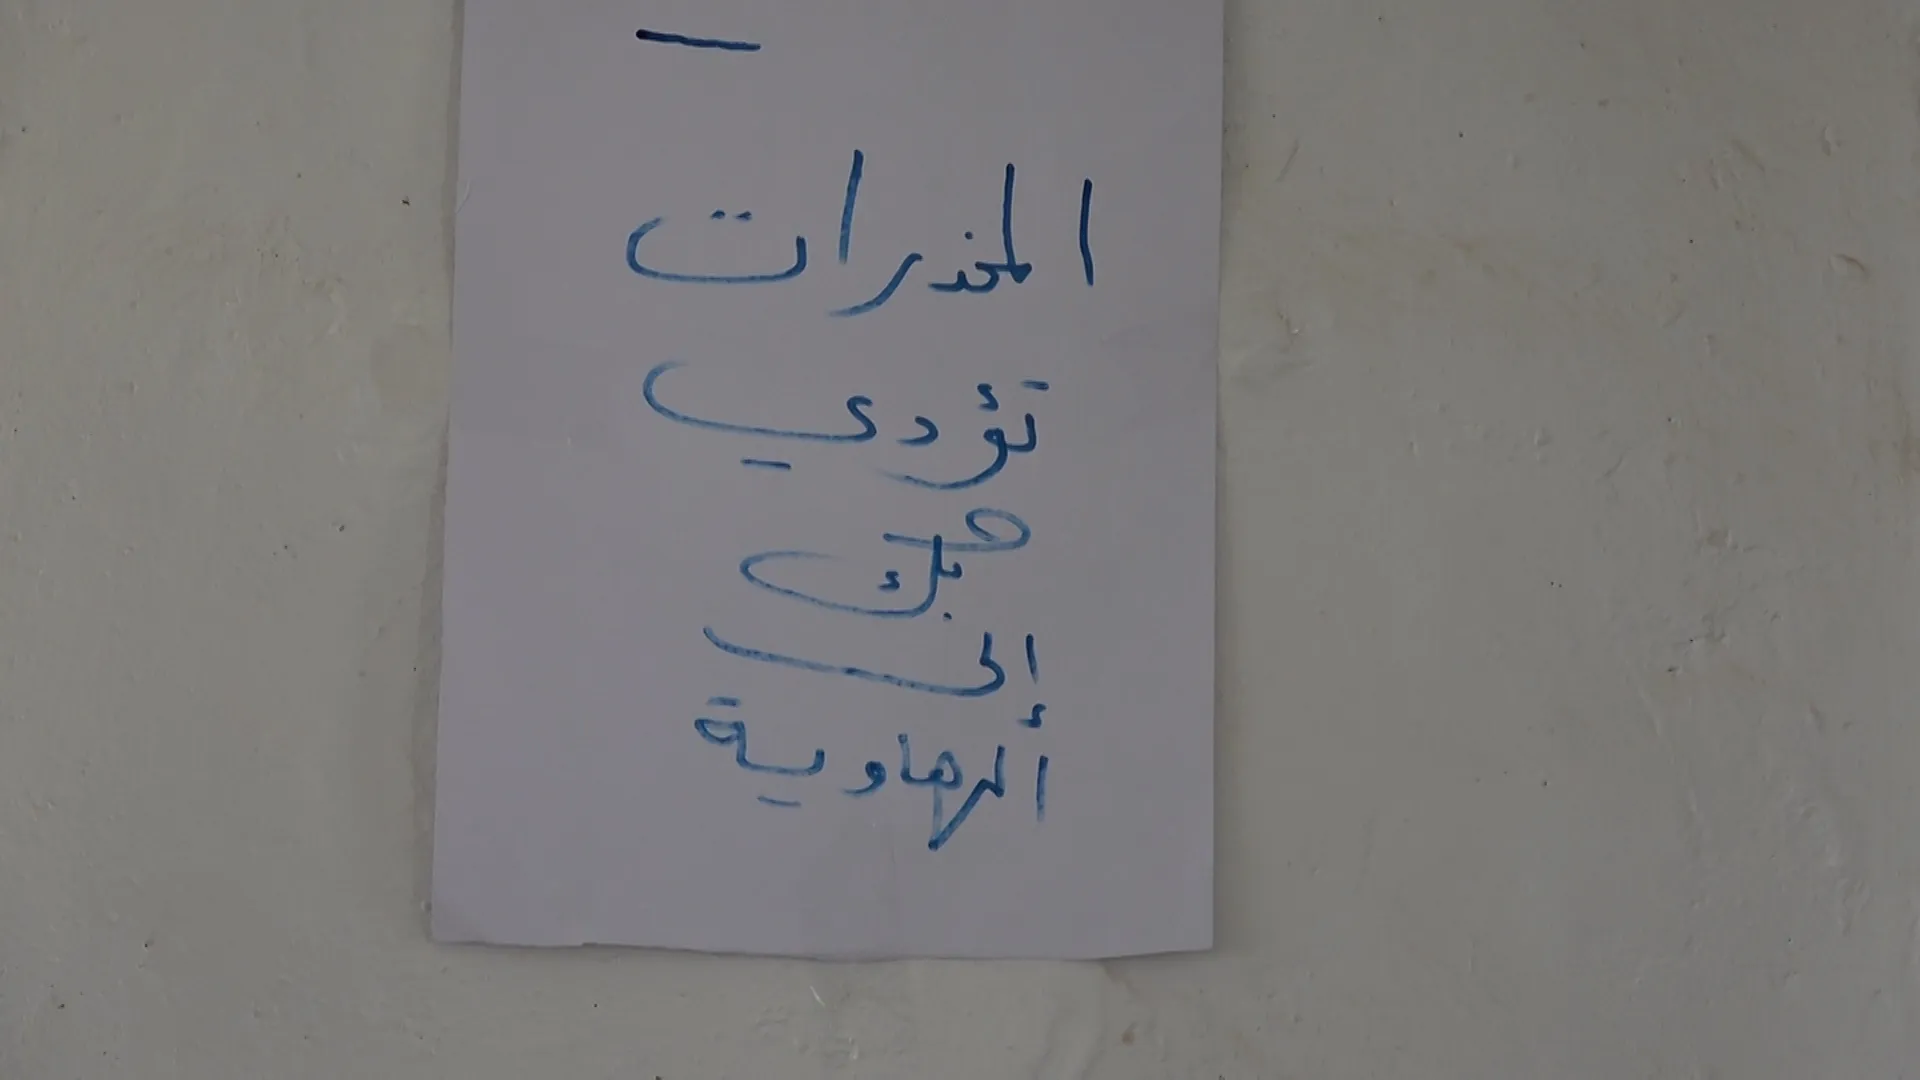 المخدرات
تؤدي
بك
إلى
الهاوية